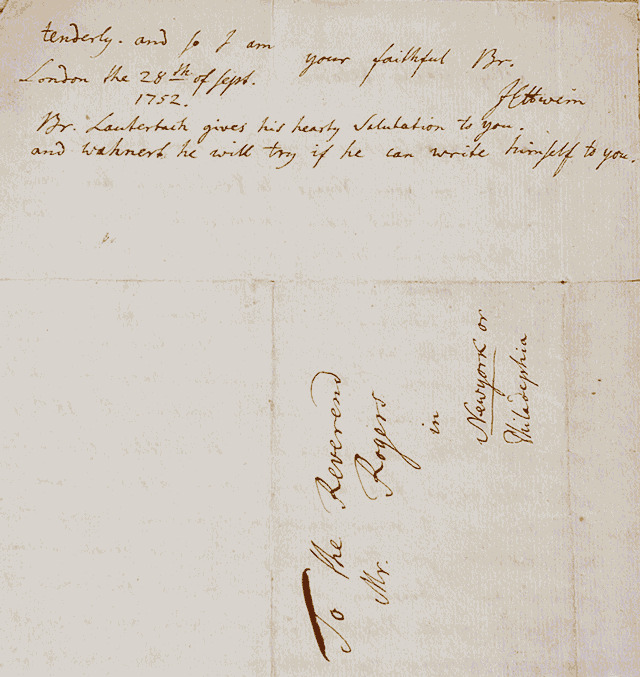 tenderly. and so I am your faithful Br.
London the 28th of Sept.
1752.
JEttwein
Br. Lauterbach gives his hearty Salutation to you.
and wahnert he will try if he can write himself to you.
To the Reverend
Mr. Rogers
in
Newyork or
Philadephia